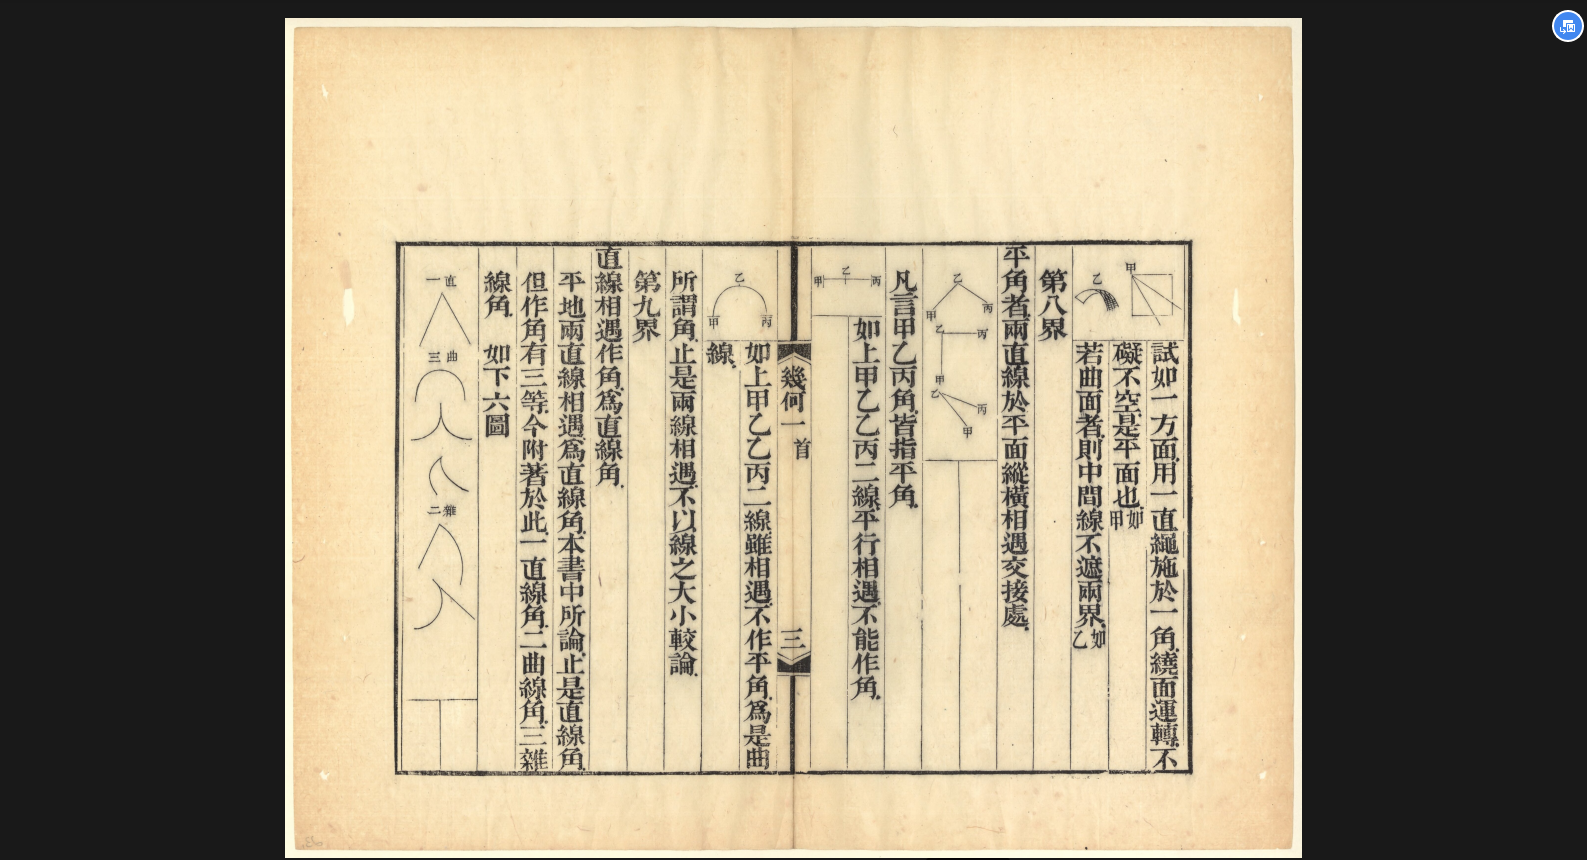 甲
乙
試如一方面.用一直繩施於一角.繞面運轉.不
礙不空.是平面也.如甲
若曲面者.則中間線不遮兩界.如乙
第八界
平角者.兩直線於平面縱橫相遇交接處.
乙
丙
甲
乙
丙
甲
乙
丙
甲
凡言甲乙丙角.皆指平角.
丙
乙
甲
如上甲乙乙丙二線.平行相遇.不能作角.
幾何一
首
三
乙
丙
甲
如上甲乙乙丙二線.雖相遇.不作平角.爲是曲
線.
所謂角.止是兩線相遇.不以線之大小較論.
第九界
直線相遇作角.爲直線角.
平地兩直線相遇.爲直線角.本書中所論.止是直線角.
但作角有三等.今附著於此.一直線角.二曲線角.三雜
線角. 如下六圖
直一
曲三
雜二